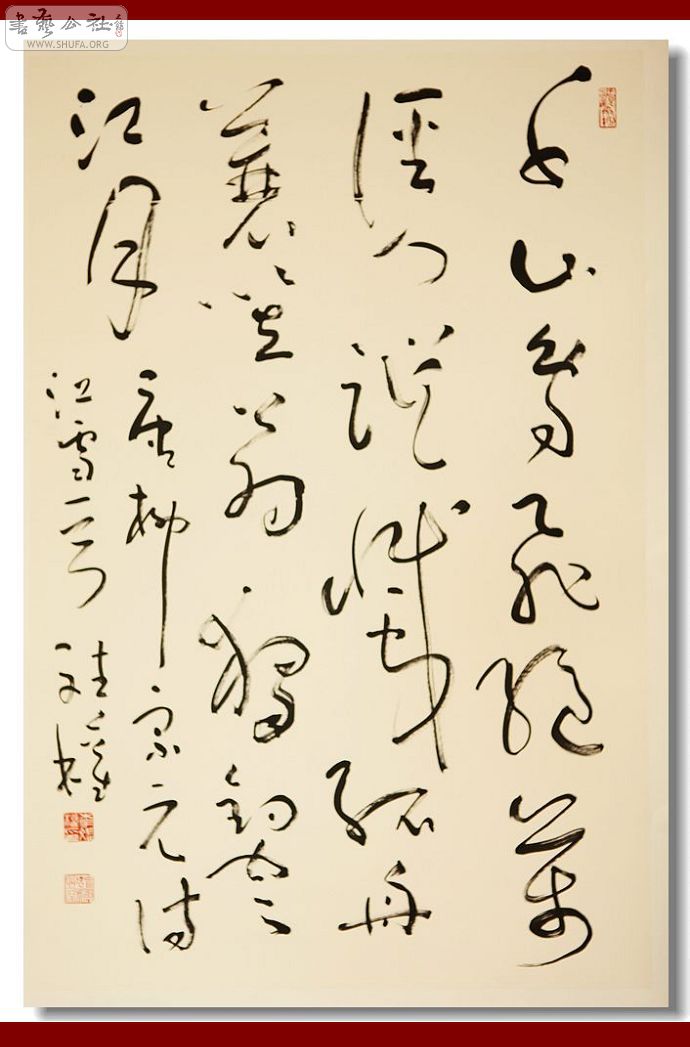 書藝公社
WWW.SHUFA.ORG
千山鳥飛絕萬
徑人蹤滅孤舟
蓑笠翁獨釣寒
江月
唐柳宗元詩
江雪一首